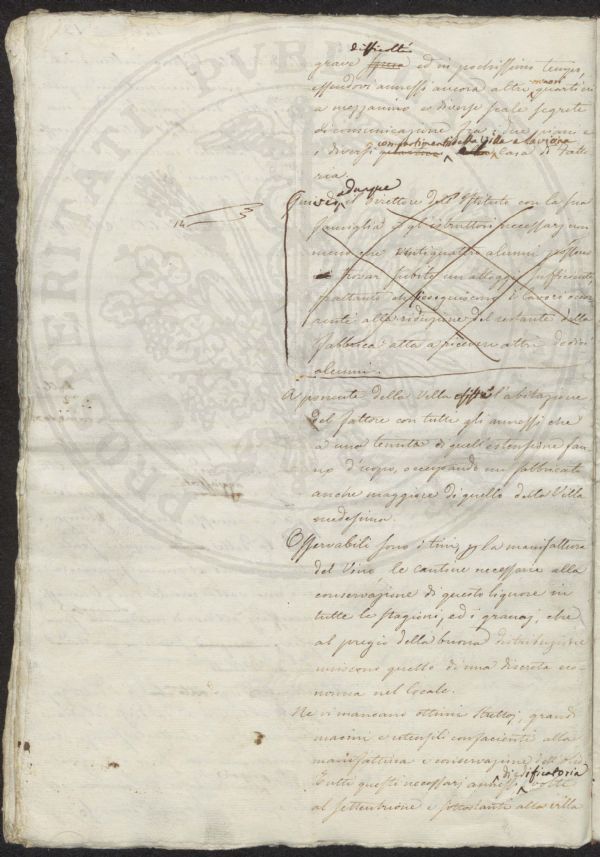 difficoltà
grave spesa ed in pochissimo tempo,
essendovi annessi ancora altri quartieri
a mezzanino e diverse scale segrete
di comunicazione fra i due piani e
i diversi compartimenti della Villa e la vicina Casa di Fatto
ria.
Quivi adunque il Direttore dell'Istituto con la sua
famiglia e gli istruttori necessarj, non
meno che ventiquattro alunni possono
trovar subito un alloggio sufficiente,
frattanto che si eseguiscono i lavori occor
renti alla riduzione del restante della
Fabbrica atta a ricevere altri dodici
alunni.
14
A ponente della Villa esiste l'abitazione
del Fattore con tutti gli annessi che
a una tenuta di quell'estensione fan
no d'uopo, occupando un fabbricato
anche maggiore di quello della Villa
medesima.
Osservabili sono i tini, per la manifattura
del Vino le cantine necessarie alla
conservazione di questo liquore in
tutte le stagioni, ed i granaj, che
al pregio della buona distribuzione
uniscono quello di una discreta eco
nomia nel locale.
Ne vi mancano ottimi strettoj, grandi
macini e utensili confacienti alla
manifattura e conservazione dell'olio.
Tutti questi necessarj annessi di edificatoria posti
al settentrione e sottostanti alla villa
PROSPERITATI PUBLICAE